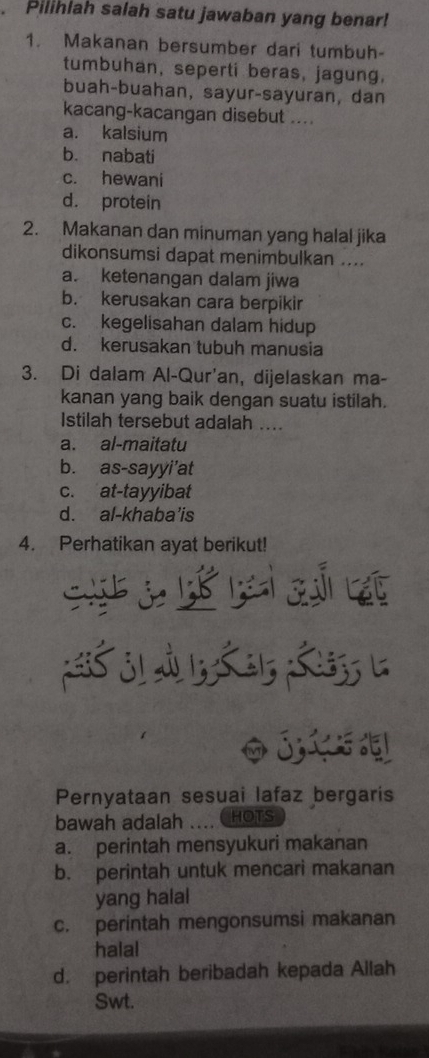 Pilihlah salah satu jawaban yang benar!
1. Makanan bersumber dari tumbuh-
tumbuhan, seperti beras, jagung,
buah-buahan, sayur-sayuran, dan
kacang-kacangan disebut ....
a. kalsium
b. nabati
c. hewani
d. protein
2. Makanan dan minuman yang halal jika
dikonsumsi dapat menimbulkan ....
a. ketenangan dalam jiwa
b. kerusakan cara berpikir
c. kegelisahan dalam hidup
d. kerusakan tubuh manusia
3. Di dalam Al-Qur'an, dijelaskan ma-
kanan yang baik dengan suatu istilah.
Istilah tersebut adalah ....
a. al-maitatu
b. as-sayyi'at
c. at-tayyibat
d. al-khaba'is
4. Perhatikan ayat berikut!
يٰٓاَيُّهَا الَّذِيْنَ اٰمَنُوْا كُلُوْا مِنْ طَيِّبٰتِ
مَا رَزَقْنٰكُمْ وَاشْكُرُوْا لِلّٰهِ اِنْ كُنْتُمْ
اِيَّاهُ تَعْبُدُوْنَ ١٧٢
Pernyataan sesuai lafaz bergaris
bawah adalah .... HOTS
a. perintah mensyukuri makanan
b. perintah untuk mencari makanan
yang halal
c. perintah mengonsumsi makanan
halal
d. perintah beribadah kepada Allah
Swt.